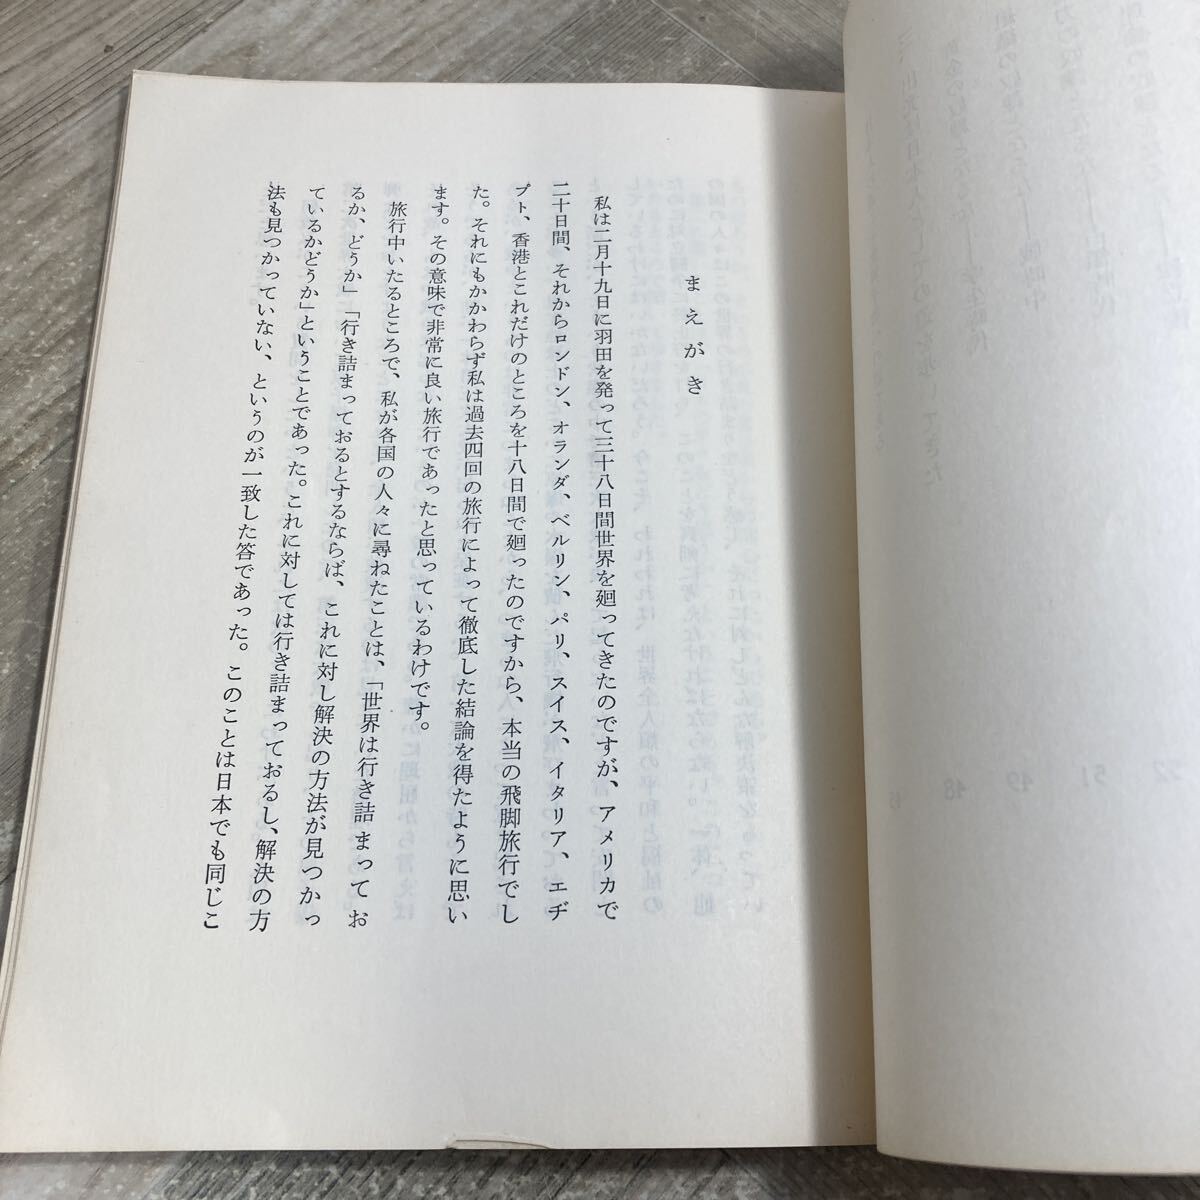 まえがき
私は二月十九日に羽田を発って三十八日間世界を廻ってきたのですが、アメリカで
二十日間、それからロンドン、オランダ、ベルリン、パリ、スイス、イタリア、エヂ
プト、香港とこれだけのところを十八日間で廻ったのですから、本当の飛脚旅行でし
た。それにもかかわらず私は過去四回の旅行によって徹底した結論を得たように思い
ます。その意味で非常に良い旅行であったと思っているわけです。
旅行中いたるところで、私が各国の人々に尋ねたことは、「世界は行き詰まってお
るか、どうか」「行き詰まっておるとするならば、これに対し解決の方法が見つかっ
ているかどうか」ということであった。これに対しては行き詰まっておるし、解決の方
法も見つかっていない、というのが一致した答であった。このことは日本でも同じこ
51
49
48